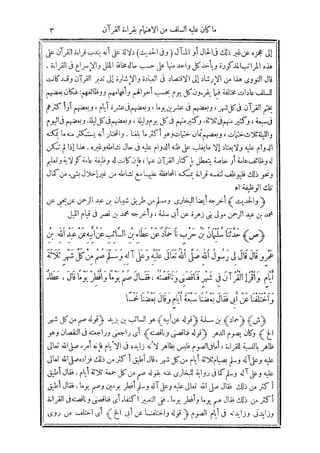 ما كان عليه السلف من الاهتمام بقراءة القرآن ٣
إلى عجزه عن غير ذلك فى الحال أو المآل ﴿وفى الحديث﴾ دلالة على أنه يندب قراءة القرآن على
هذه المراتب المذكورة ويأخذ كل واحد منها على حسب حاله مخافة الملل والإسراع فى القراءة.
قال النووى هذا من الإرشاد إلى الاقتصاد فى العبادة والإشارة إلى تدبر القرآن وقد كانت
للسلف عادات مختلفة فيما يقرءون كل يوم بحسب أحوالهم وأفهامهم ووظائفهم: فكان بعضهم
يختم القرآن فى كل شهر، وبعضهم فى عشرين يوما، وبعضهم فى عشرة أيام، وبعضهم أو أكثرهم
فى سبعة، وكثير منهم فى ثلاثة، وكثير منهم فى كل يوم وليلة، وبعضهم فى كل ليلة، وبعضهم فى اليوم
والليلة ثلاث ختمات، وبعضهم ثمان ختمات وهو أكثر ما بلغنا. والمختار أنه يستكثر منه ما يمكنه
الدوام عليه ولا يعتاد إلا ما يغلب على ظنه الدوام عليه فى حال نشاطه وغيره. هذا إذا لم تكن
له وظائف عامة أو خاصة يتعطل بإكثار القرآن عنها، فإن كانت له وظيفة عامة كولاية وتعليم
ونحو ذلك فليوظف لنفسه قراءة يمكنه المحافظة عليها مع نشاطه من غير إخلال بشىء من كمال
تلك الوظيفة اه
﴿والحديث﴾ أخرجه أيضا البخارى ومسلم من طريق شيبان بن عبد الرحمن عن يحيى عن
محمد بن عبد الرحمن مولى بنى زهرة عن أبى سلمة، وأخرجه محمد بن نصر فى قيام الليل
﴿ص﴾ حَدَّثَنَا سُلَيْمَانُ بْنُ حَرْبٍ نَا حَمَّادٌ عَنْ عَطَاءِ بْنِ السَّائِبِ عَنْ أَبِيهِ عَنْ عَبْدِ اللهِ بْنِ
عَمْرٍو قَالَ قَالَ لِى رَسُولُ اللهِ صَلَّى اللهُ تَعَالَى عَلَيْهِ وَعَلَى آلِهِ وَسَلَّمَ صُمْ مِنْ كُلِّ شَهْرٍ ثَلَاثَةَ
أَيَّامٍ، وَاقْرَإِ الْقُرْآنَ فِى شَهْرٍ فَنَاقَصَنِى وَنَاقَصْتُهُ، فَقَالَ صُمْ يَوْمًا وَأَفْطِرْ يَوْمًا قَالَ: عَطَاءٌ
وَاخْتَلَفْنَا عَنْ أَبِى فَقَالَ بَعْضُنَا سَبْعَةَ أَيَّامٍ وَقَالَ بَعْضُنَا خَمْسًا
﴿ش﴾ ﴿حماد﴾ بن سلمة ﴿قوله عن أبيه﴾ هو السائب بن يزيد ﴿قوله صم من كل شهر
الخ﴾ وكان يصوم الدهر ﴿قوله فناقصنى وناقصته﴾ أى راجعنى وراجعته فى النقصان وهو
ظاهر بالنسبة للقراءة، أما فى الصوم فليس بظاهر لأنه زايده فى الأيام فإنه أمره صلى الله تعالى
عليه وعلى آله وسلم بصيام ثلاثة أيام من كل شهر، قال أطيق أكثر من ذلك فزاده صلى الله تعالى
عليه وعلى آله وسلم كما فى رواية للبخارى عنه بقوله صم من كل جمعة ثلاثة أيام. فقال أطيق
أكثر من ذلك فقال صلى الله تعالى عليه وعلى آله وسلم أفطر يومين وصم يوما، فقال أطيق
أكثر من ذلك فقال صم يوما وأفطر يوما. ففى التعبير اكتفاء أى فناقصنى وناقصته فى القراءة
وزايدنى وزايدته فى أيام الصوم ﴿قوله واختلفنا عن أبى الخ﴾ أى اختلف من روى